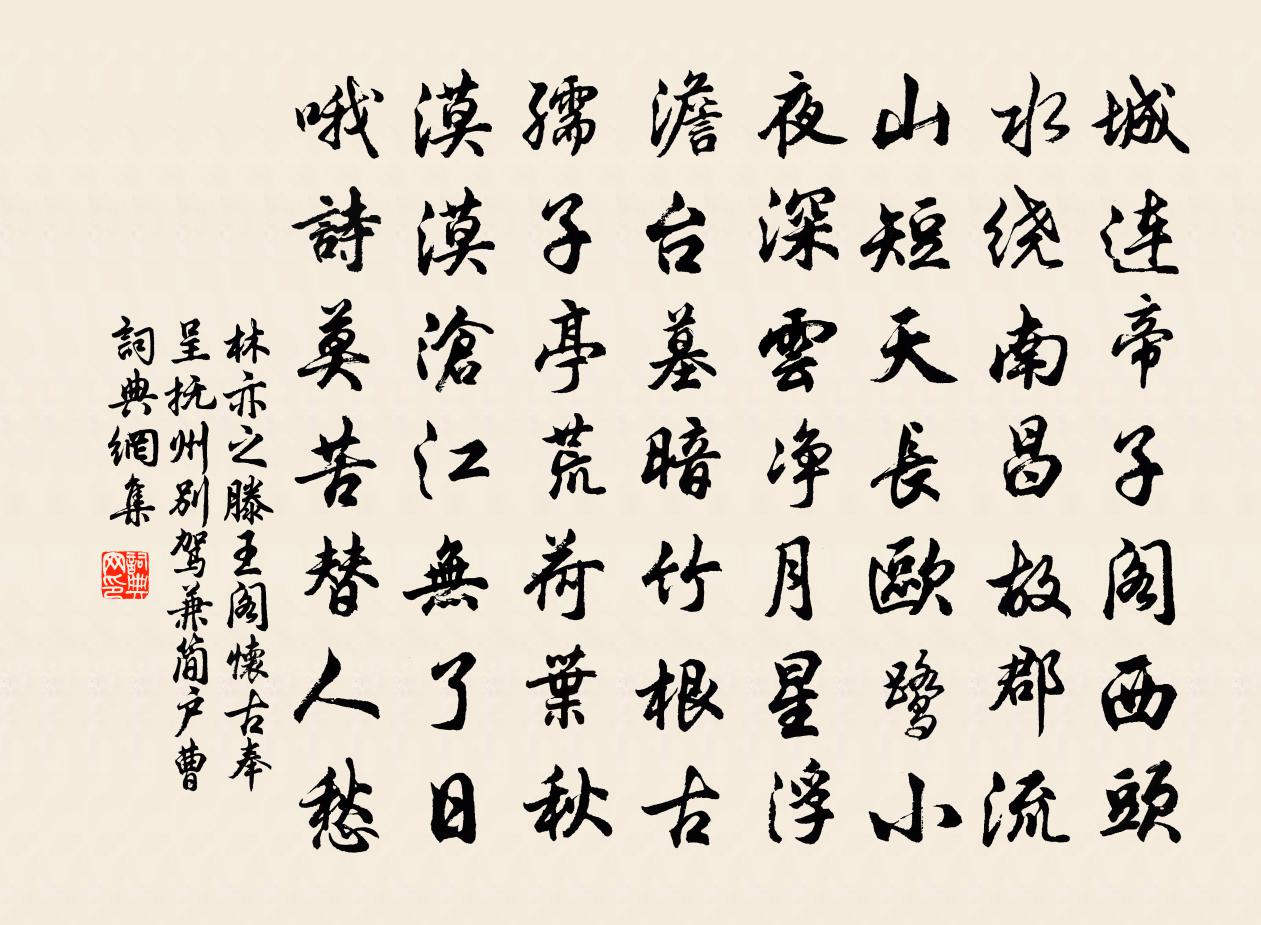 城连帝子阁西頭
水绕南昌故郡流
山短天長歐鹭小
夜深雲净月星浮
澹台墓暗竹根古
孺子亭荒荷葉秋
漠漠滄江無了日
哦詩莫苦替人愁
林亦之滕王阁懷古奉
呈抚州别驾兼简户曹
詞典網集
詞典
网印